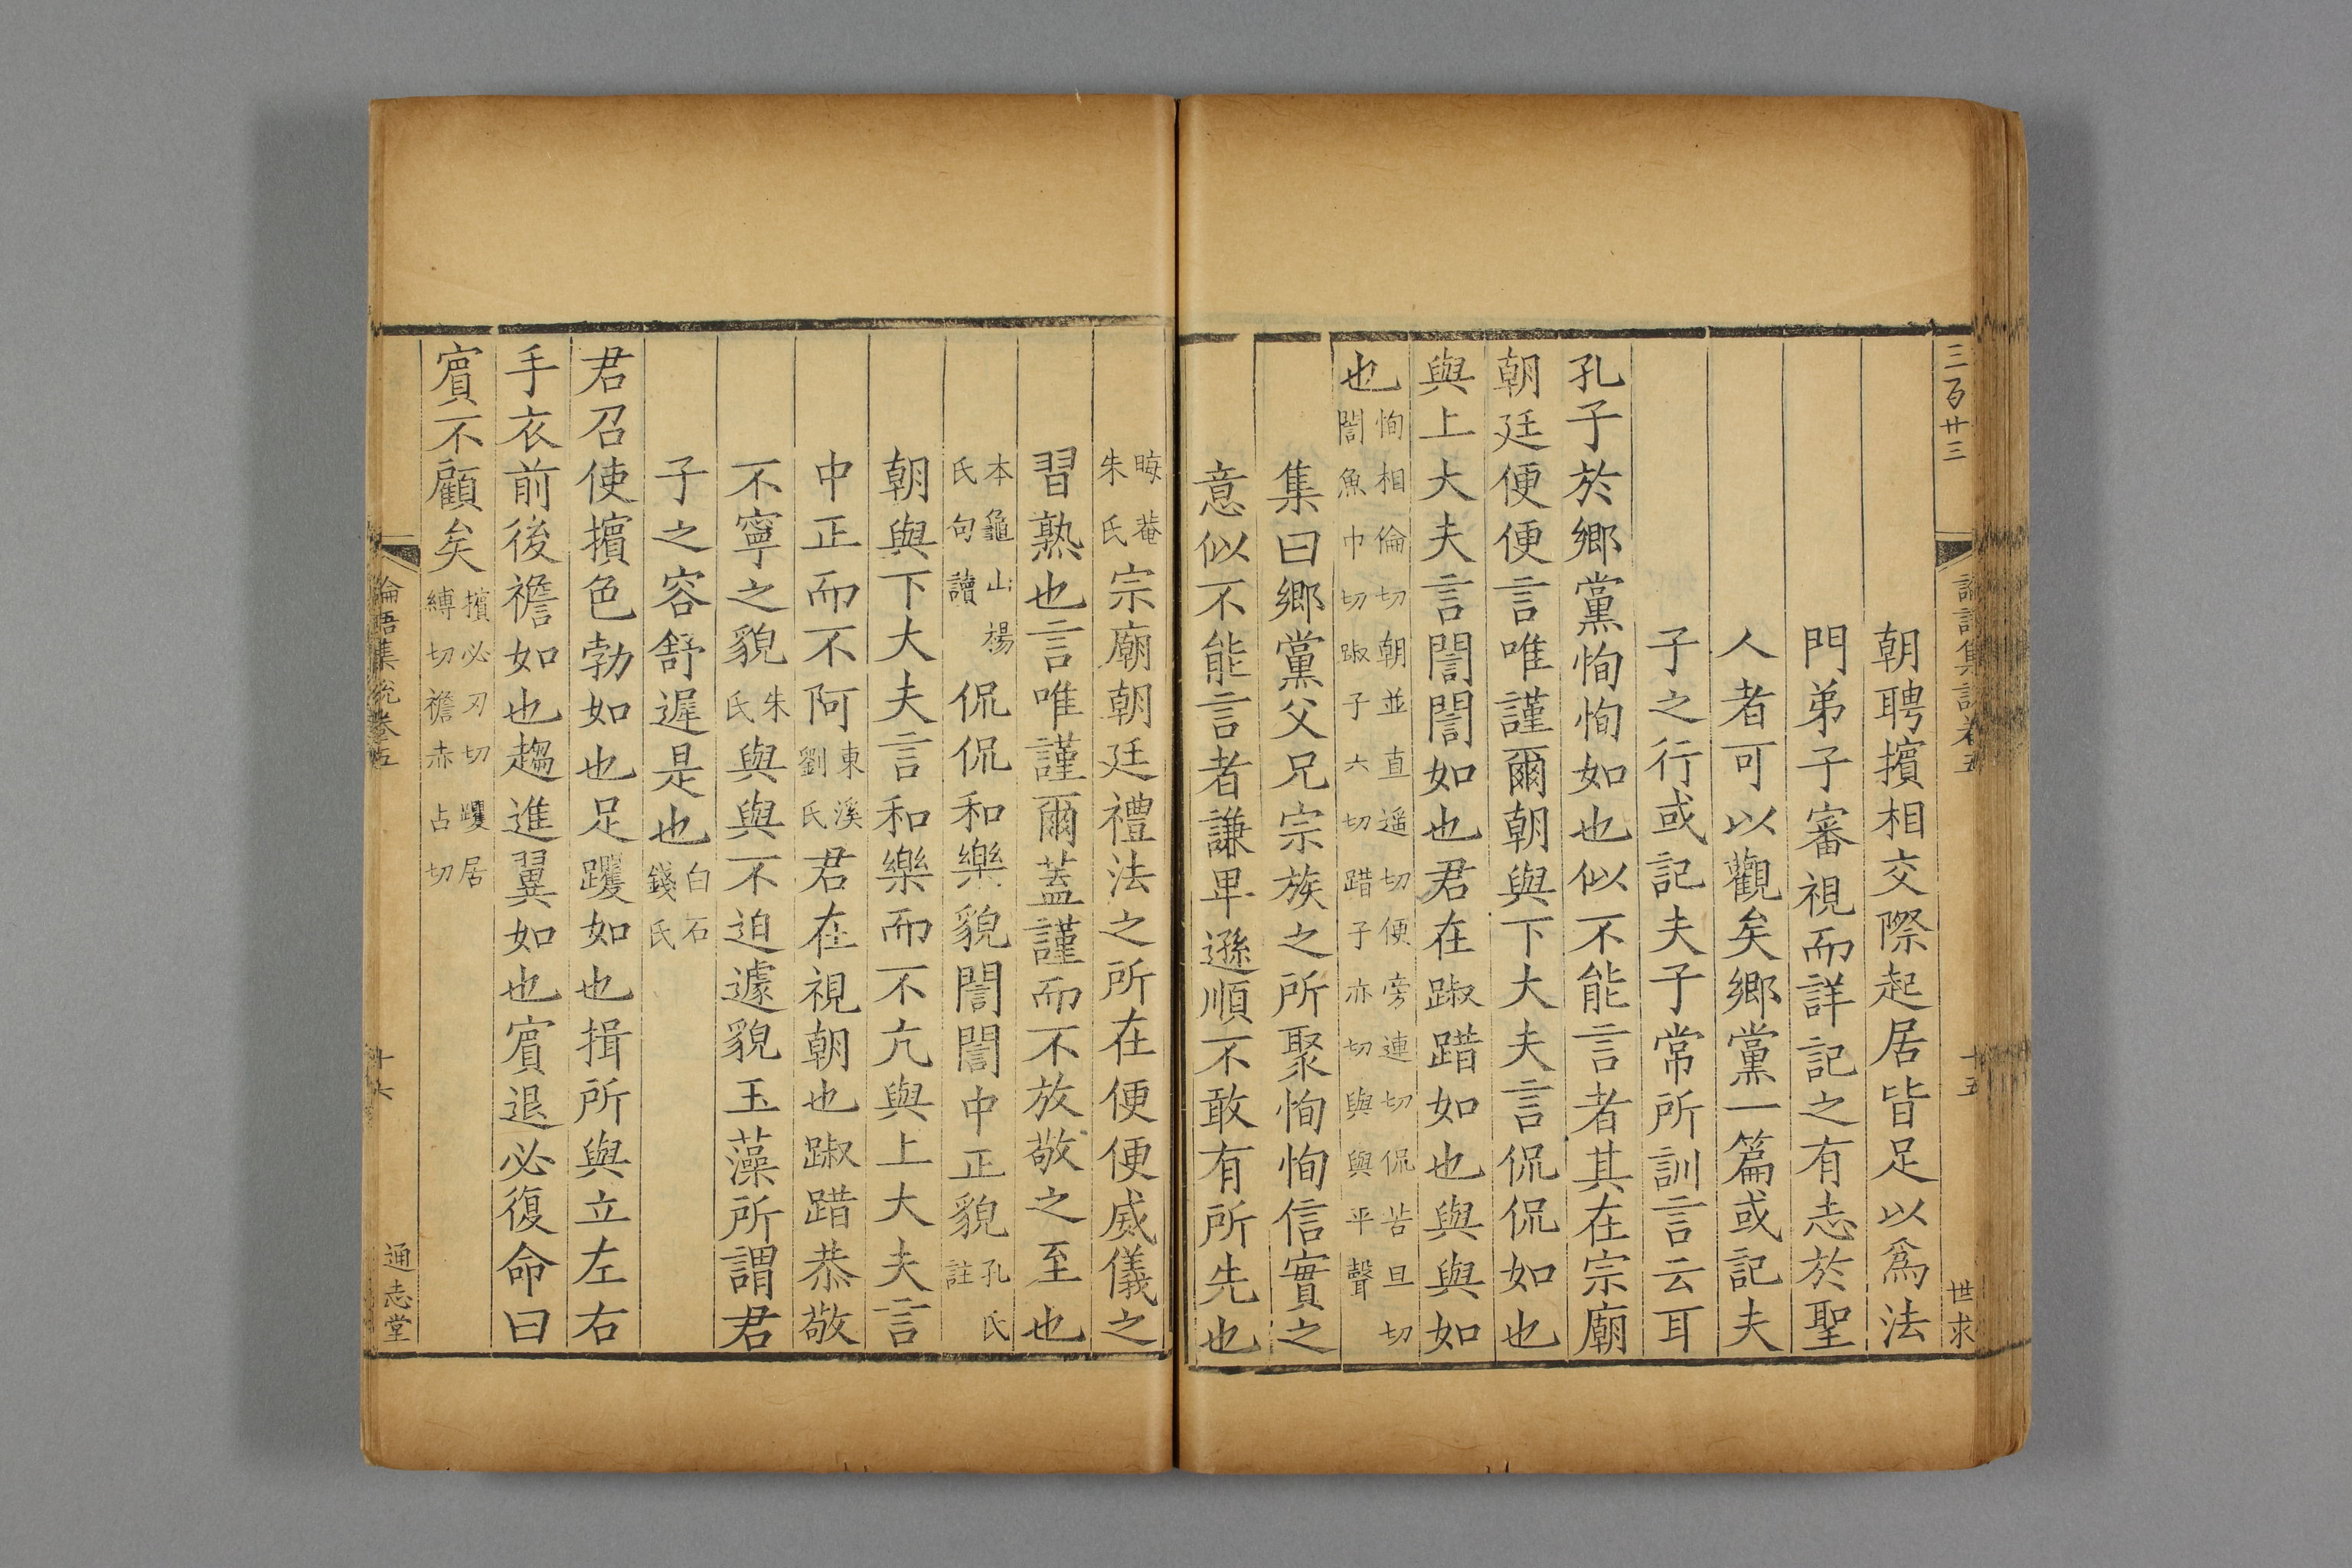 三百廿三
論語集說卷五
十五
世求
朝聘擯相交際起居皆足以爲法
門弟子審視而詳記之有志於聖
人者可以觀矣鄉黨一篇或記夫
子之行或記夫子常所訓言云耳
孔子於鄉黨恂恂如也似不能言者其在宗廟
朝廷便便言唯謹爾朝與下大夫言侃侃如也
與上大夫言誾誾如也君在踧踖如也與與如
也恂相倫切朝並直遥切便旁連切侃苦旦切
誾魚巾切踧子六切踖子亦切與與平聲
集曰鄉黨父兄宗族之所聚恂恂信實之
意似不能言者謙卑遜順不敢有所先也
晦菴朱氏宗廟朝廷禮法之所在便便威儀之
習熟也言唯謹爾蓋謹而不放敬之至也
本龜山楊氏句讀侃侃和樂貌誾誾中正貌孔氏註
朝與下大夫言和樂而不亢與上大夫言
中正而不阿東溪劉氏君在視朝也踧踖恭敬
不寧之貌朱氏與與不迫遽貌玉藻所謂君
子之容舒遲是也白石錢氏
君召使擯色勃如也足躩如也揖所與立左右
手衣前後襜如也趨進翼如也賓退必復命曰
賓不顧矣擯必刃切躩居縛切襜赤占切
論語集說卷五
十六
通志堂